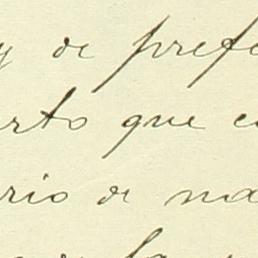 y de prefe
erto que e
rio de na